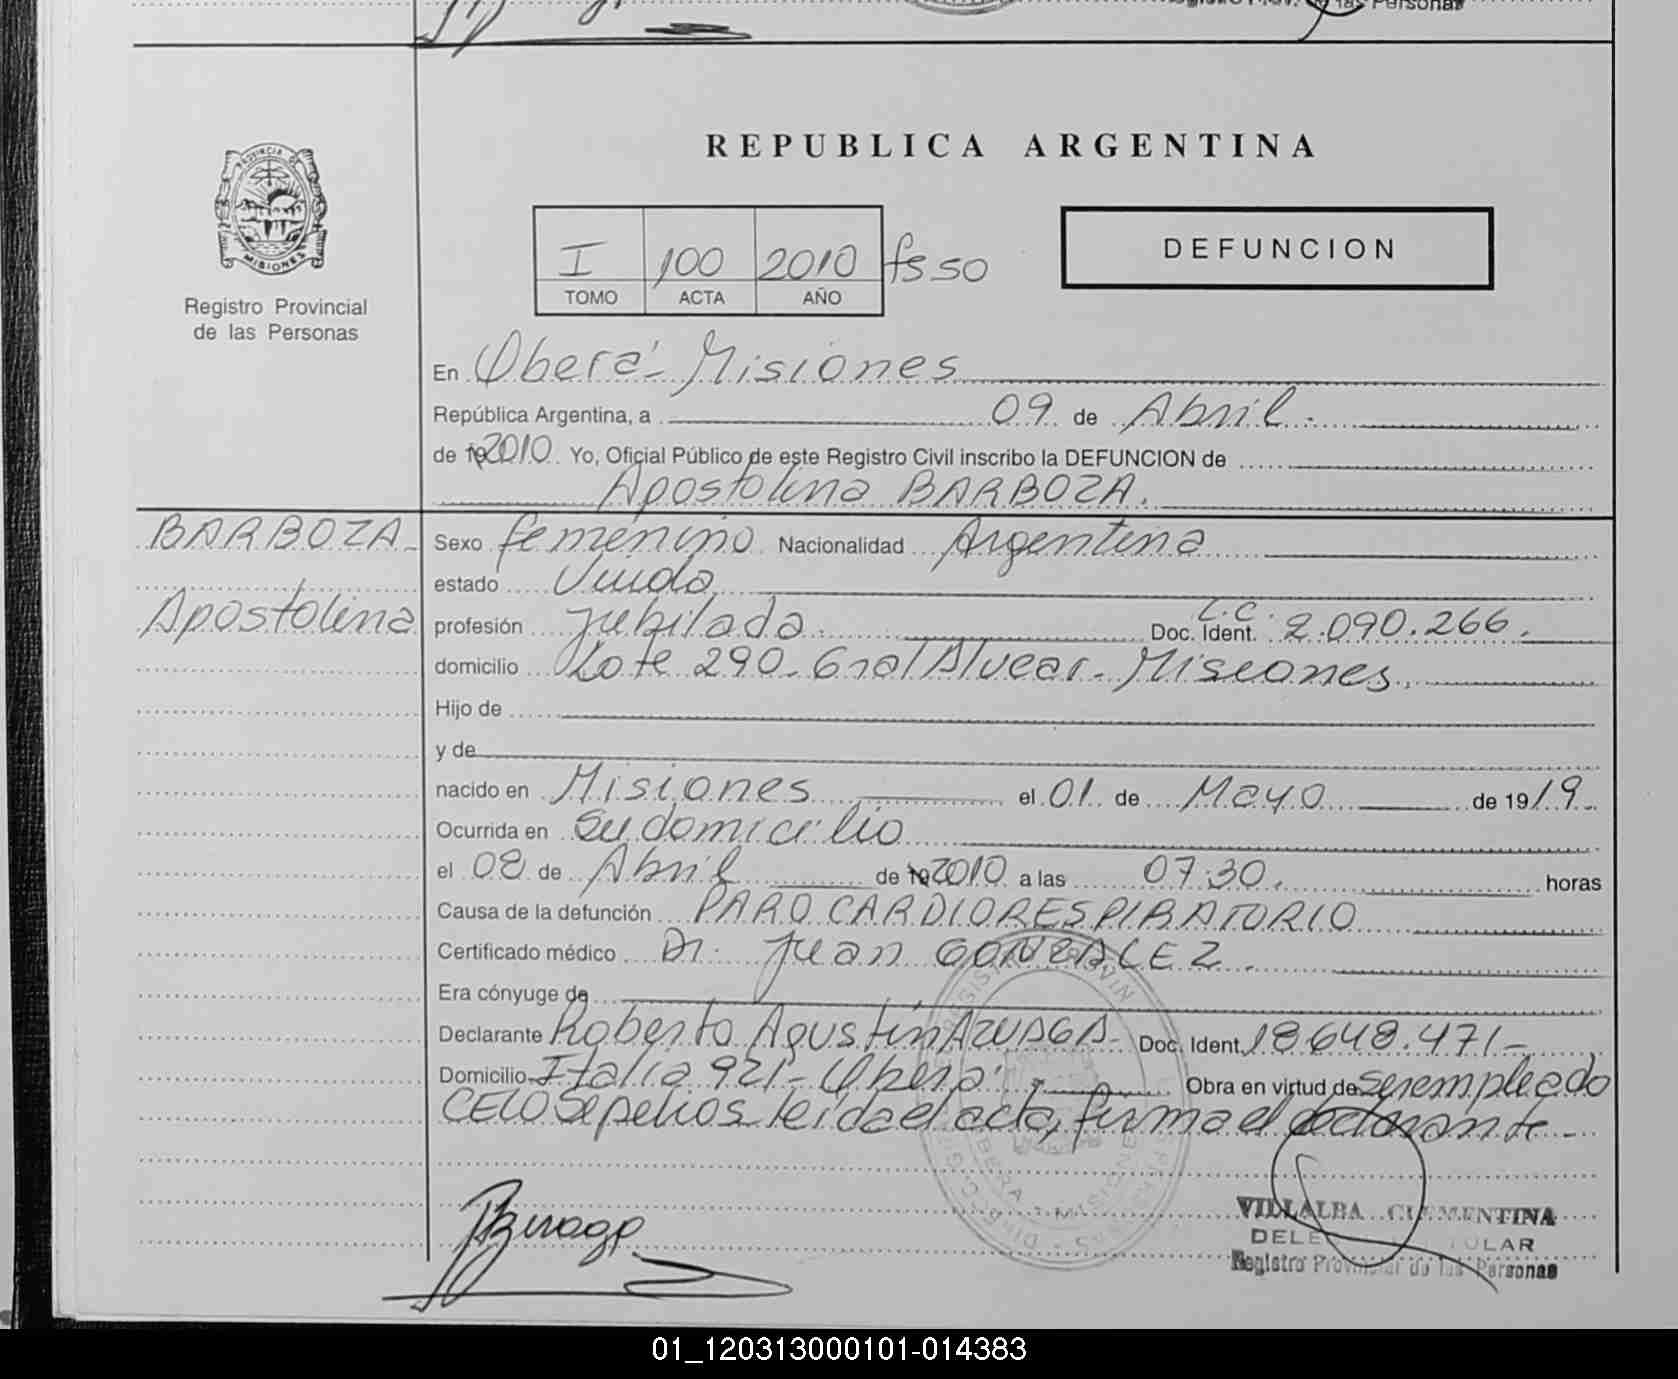 REPUBLICA ARGENTINA
PROVINCIA DE
MISIONES
Registro Provincial
de las Personas
I 100 2010 fs 50
TOMO ACTA AÑO
DEFUNCION
En Oberá - Misiones
República Argentina, a 09 de Abril.
de 19 2010 Yo, Oficial Público de este Registro Civil inscribo la DEFUNCION de
Apostolina BARBOZA.
BARBOZA
Apostolina
Sexo femenino Nacionalidad Argentina
estado Viuda
profesión jubilada. Doc. Ident. L.C. 2.090.266.
domicilio Lote 290 - Gral Alvear - Misiones.
Hijo de
y de
nacido en Misiones el 01 de Mayo de 1919
Ocurrida en Su domicilio
el 08 de Abril de 19 2010 a las 07:30. horas
Causa de la defunción PARO CARDIORESPIRATORIO
Certificado médico Dr. Juan GONZALEZ.
Era cónyuge de
Declarante Roberto Agustín AZUAGA - Doc. Ident. 18.648.471 -
Domicilio Italia 921 - Oberá - Obra en virtud de ser empleado
CELO Sepelios leída el acta, firma el declarante -
VILLALBA CLEMENTINA
Registro Provincial de las Personas
01_120313000101-014383